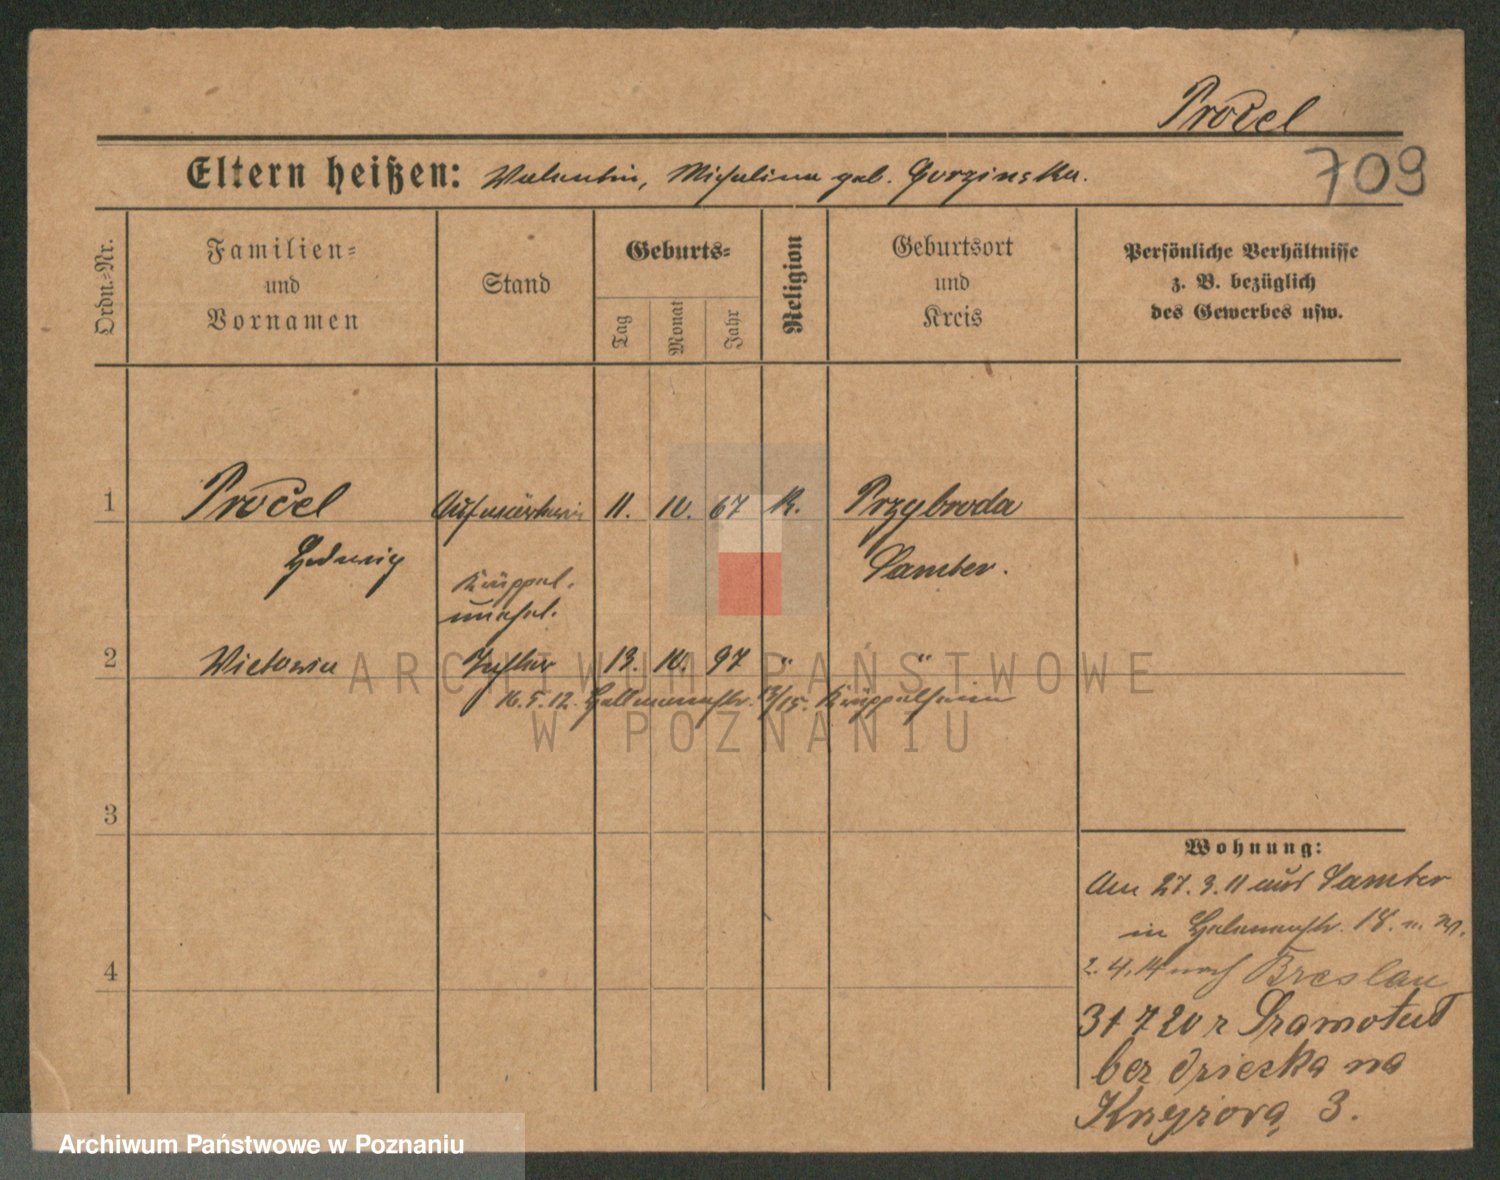 Prodel
709
Eltern heißen: Valentin, Michalina geb. Gorzinska.
Ordn.-Nr.
Familien- und Vornamen
Stand
Geburts-
Tag
Monat
Jahr
Religion
Geburtsort und Kreis
Persönliche Verhältnisse z. B. bezüglich des Gewerbes usw.
1 Prodel Aufwärterin 11. 10. 67 K. Przybroda
Hedwig Samter.
Krüppel.
2 Victoria Tochter 13. 10. 97 " "
16. 5. 12. 13/15. Krüppelheim
3
4
Wohnung:
Am 27. 3. 11 aus Samter
in 18.
2. 4. 14 nach Breslau
31 7 20 z Szamotuł
bez dziecka na
Knyżową 3.
ARCHIWUM PAŃSTWOWE
W POZNANIU
Archiwum Państwowe w Poznaniu